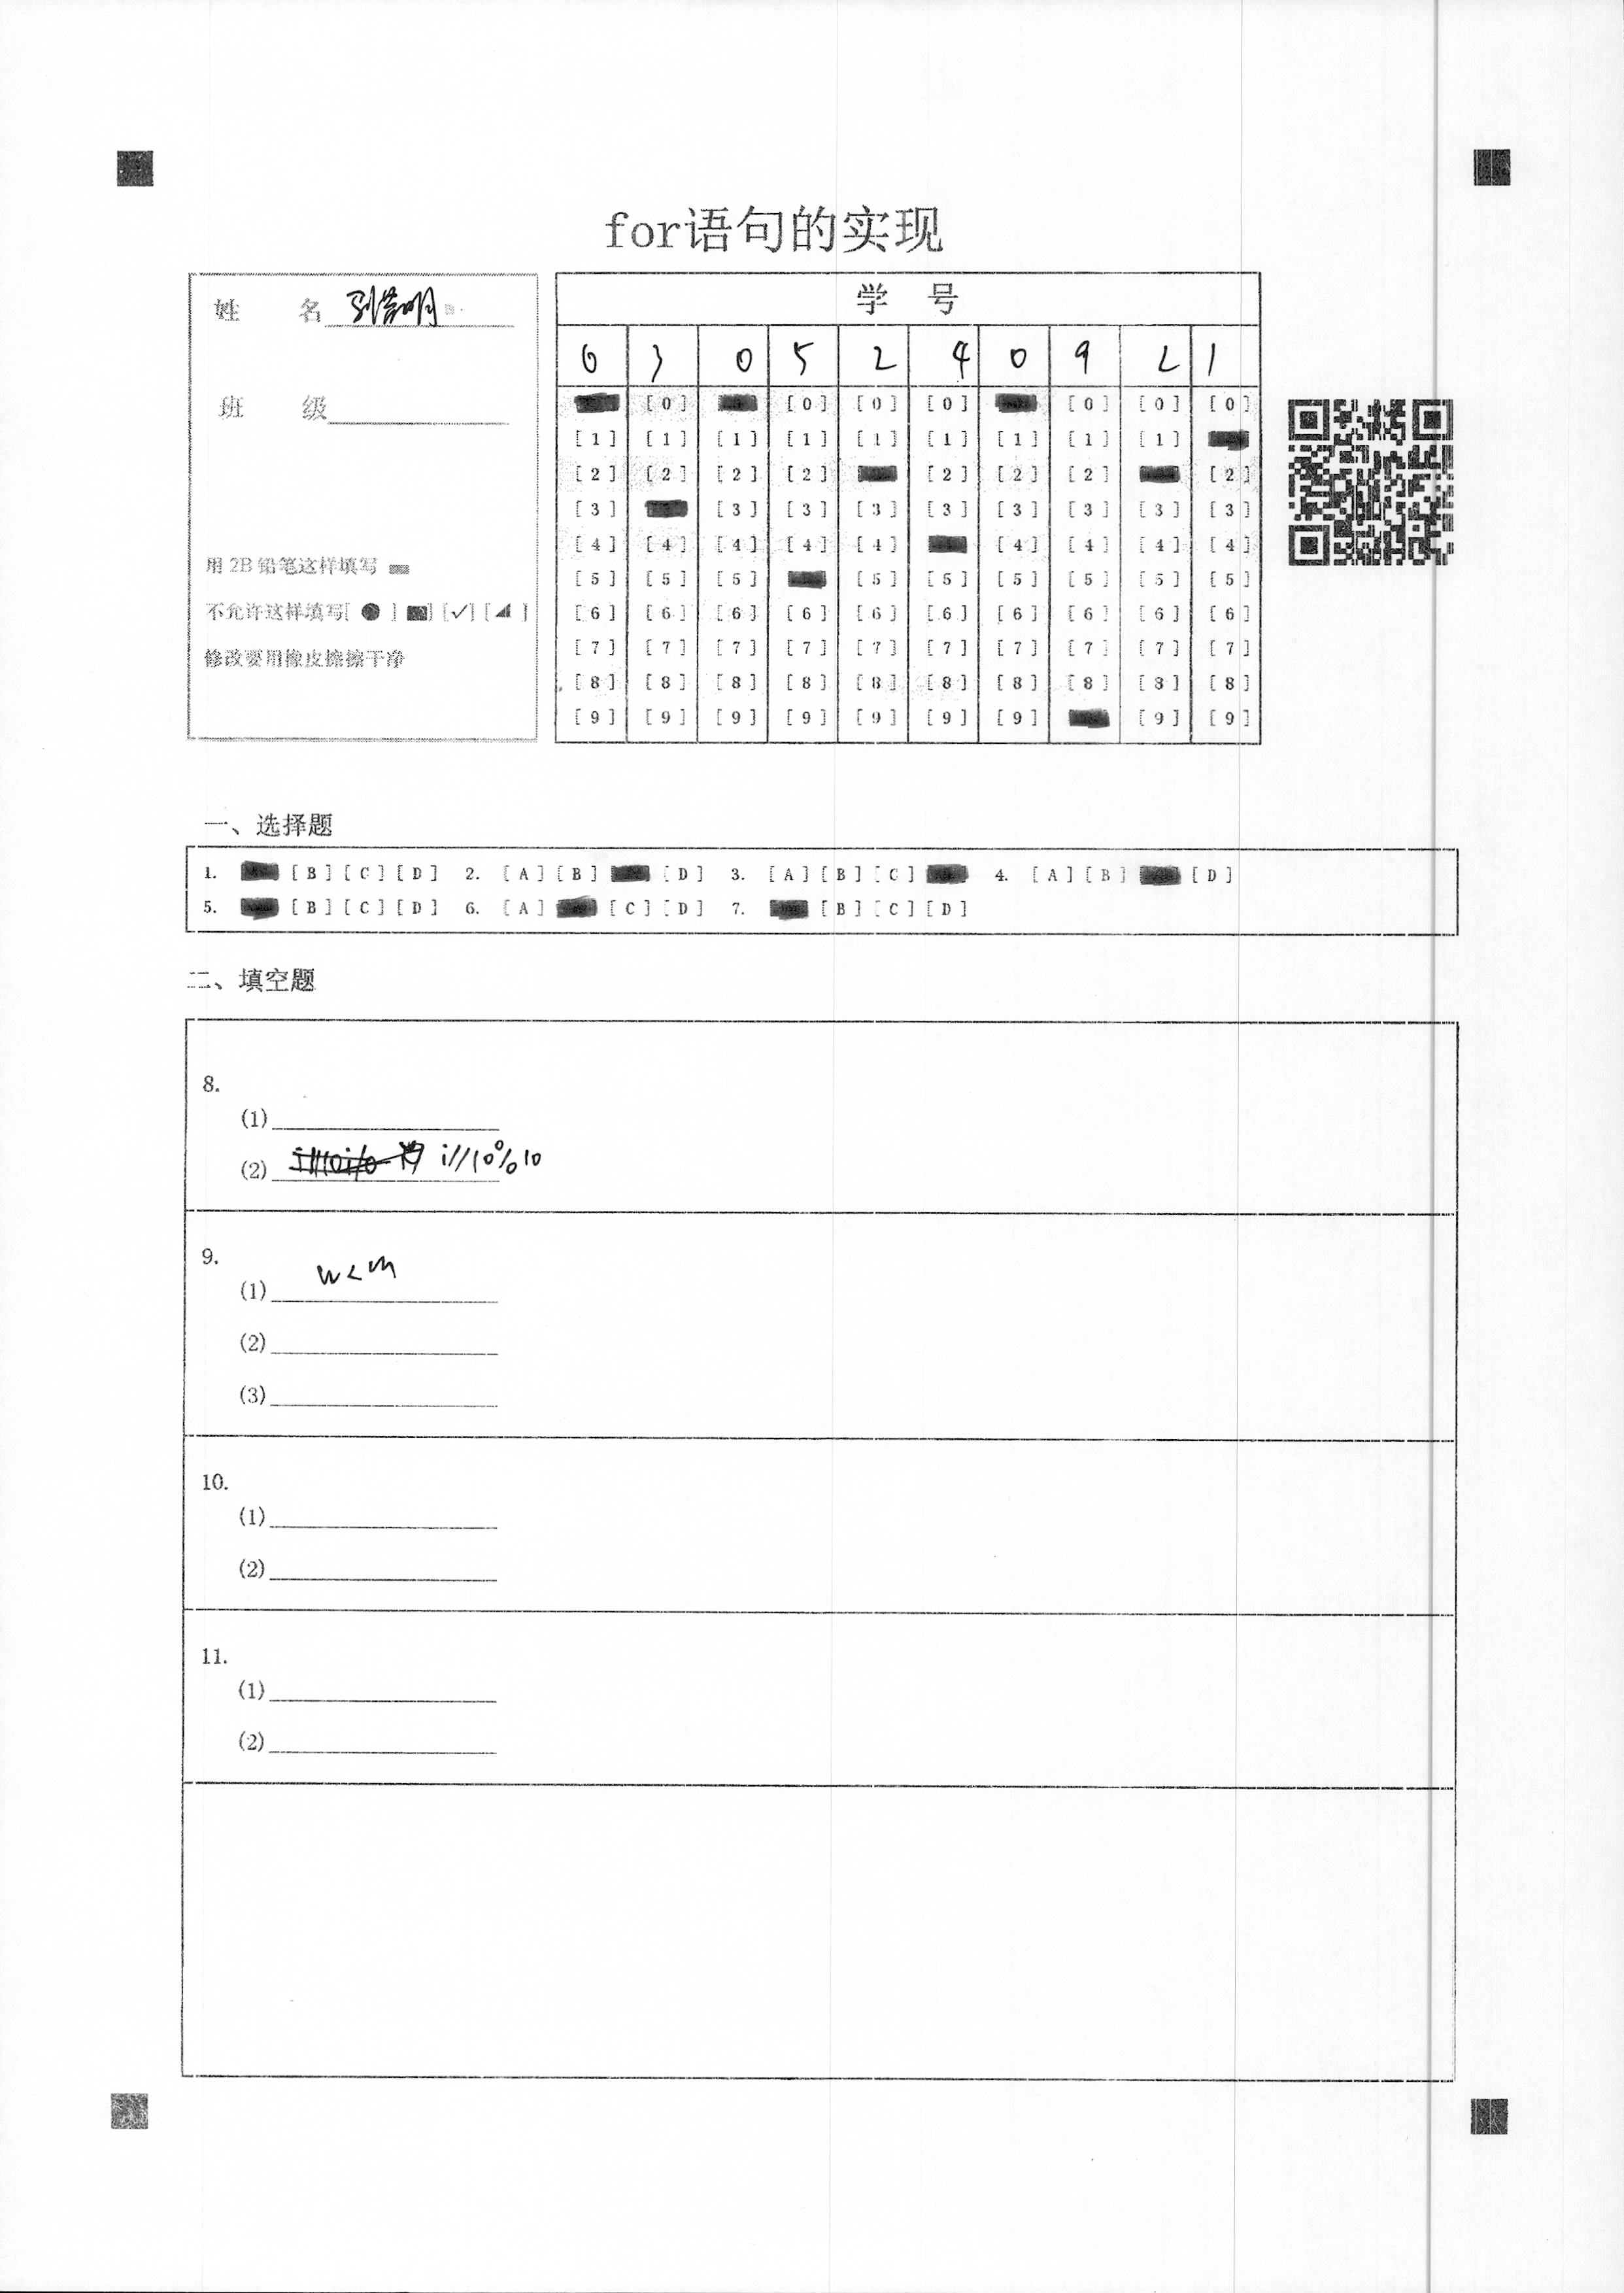 for语句的实现
姓 名
班 级
用 2B 铅笔这样填写
不允许这样填写[ ● ] [■] [✓] [◢ ]
修改要用橡皮擦擦干净
学 号
0 3 0 5 2 4 0 9 2 1
[0] [0] [0] [0] [0] [0] [0]
[1] [1] [1] [1] [1] [1] [1] [1] [1]
[2] [2] [2] [2] [2] [2] [2] [2]
[3] [3] [3] [3] [3] [3] [3] [3] [3]
[4] [4] [4] [4] [4] [4] [4] [4] [4]
[5] [5] [5] [5] [5] [5] [5] [5] [5]
[6] [6] [6] [6] [6] [6] [6] [6] [6] [6]
[7] [7] [7] [7] [7] [7] [7] [7] [7] [7]
[8] [8] [8] [8] [8] [8] [8] [8] [8] [8]
[9] [9] [9] [9] [9] [9] [9] [9] [9]
一、选择题
1. [B] [C] [D] 2. [A] [B] [D] 3. [A] [B] [C] 4. [A] [B] [D]
5. [B] [C] [D] 6. [A] [C] [D] 7. [B] [C] [D]
二、填空题
8.
(1)
(2) i//10%10
9.
(1) n<m
(2)
(3)
10.
(1)
(2)
11.
(1)
(2)